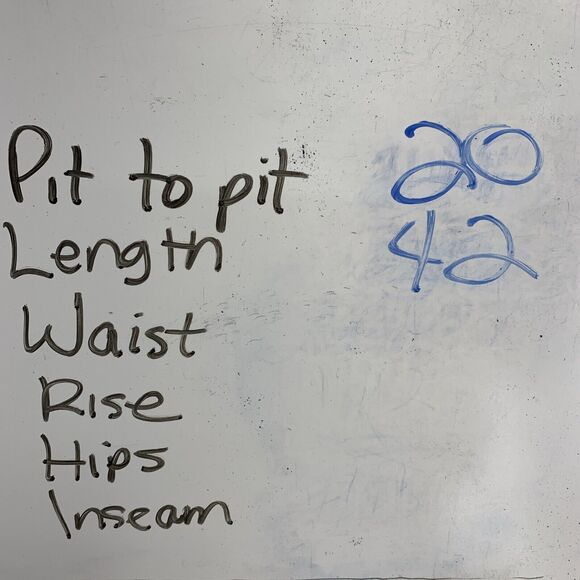 Pit to pit 20
Length 42
Waist
Rise
Hips
Inseam